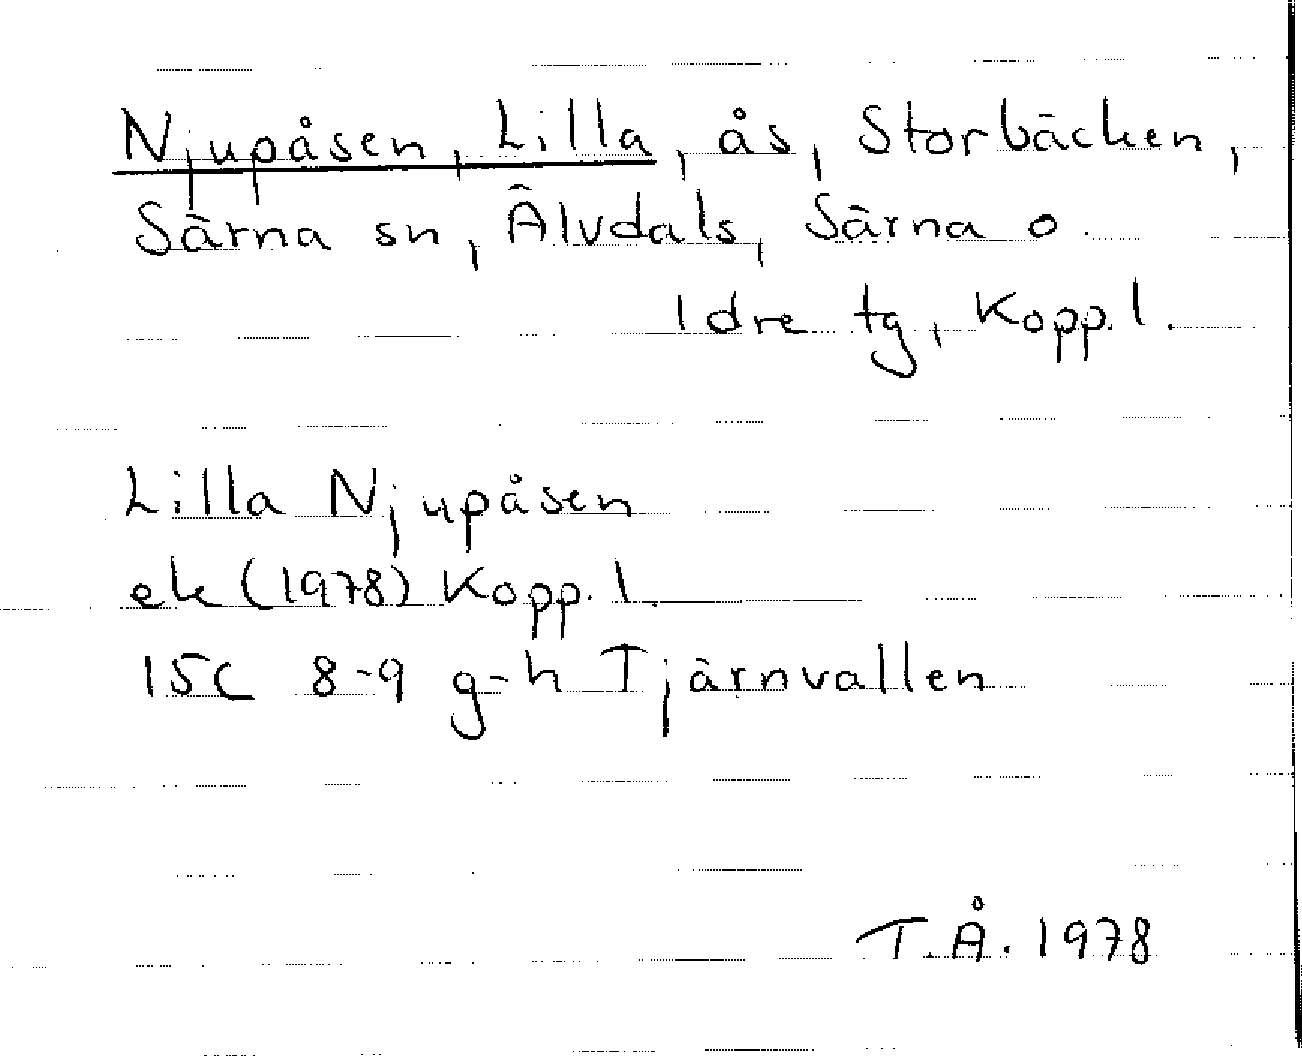 Njupåsen, Lilla, ås, Storbäcken,
Särna sn, Älvdals, Särna o
Idre tg, Kopp. l.
Lilla Njupåsen
ek (1978) Kopp. l.
15C 8-9 g-h Tjärnvallen
T.Å. 1978